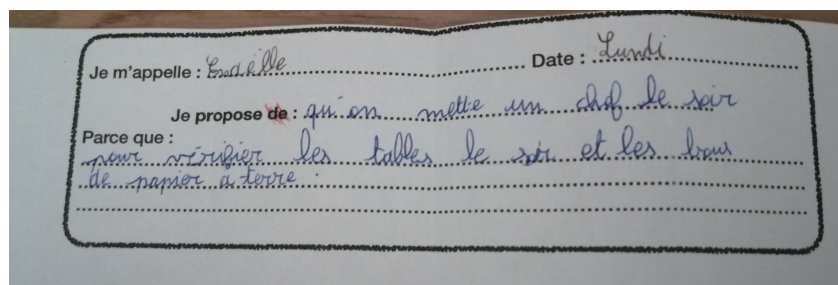 Je m'appelle : Date : Lundi
Je propose de : qu'on mette un chef le soir
Parce que :
pour vérifier les tables le soir et les bous
de papier a terre.